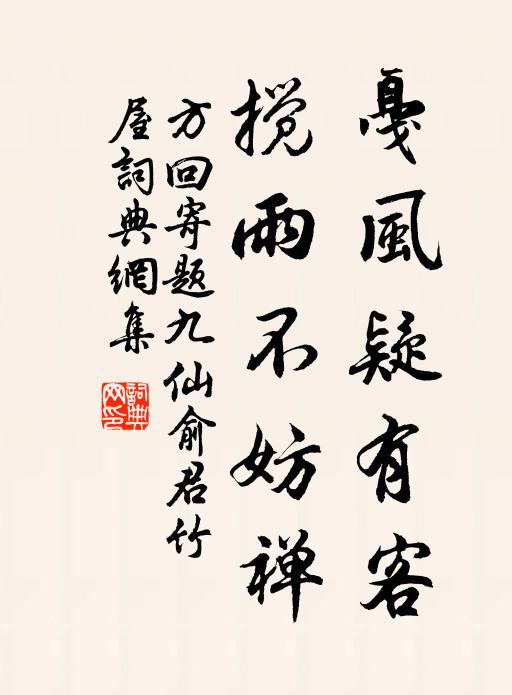 戞風疑有客
搅雨不妨禅
方回寄题九仙俞君竹
屋詞典網集
詞典
网印